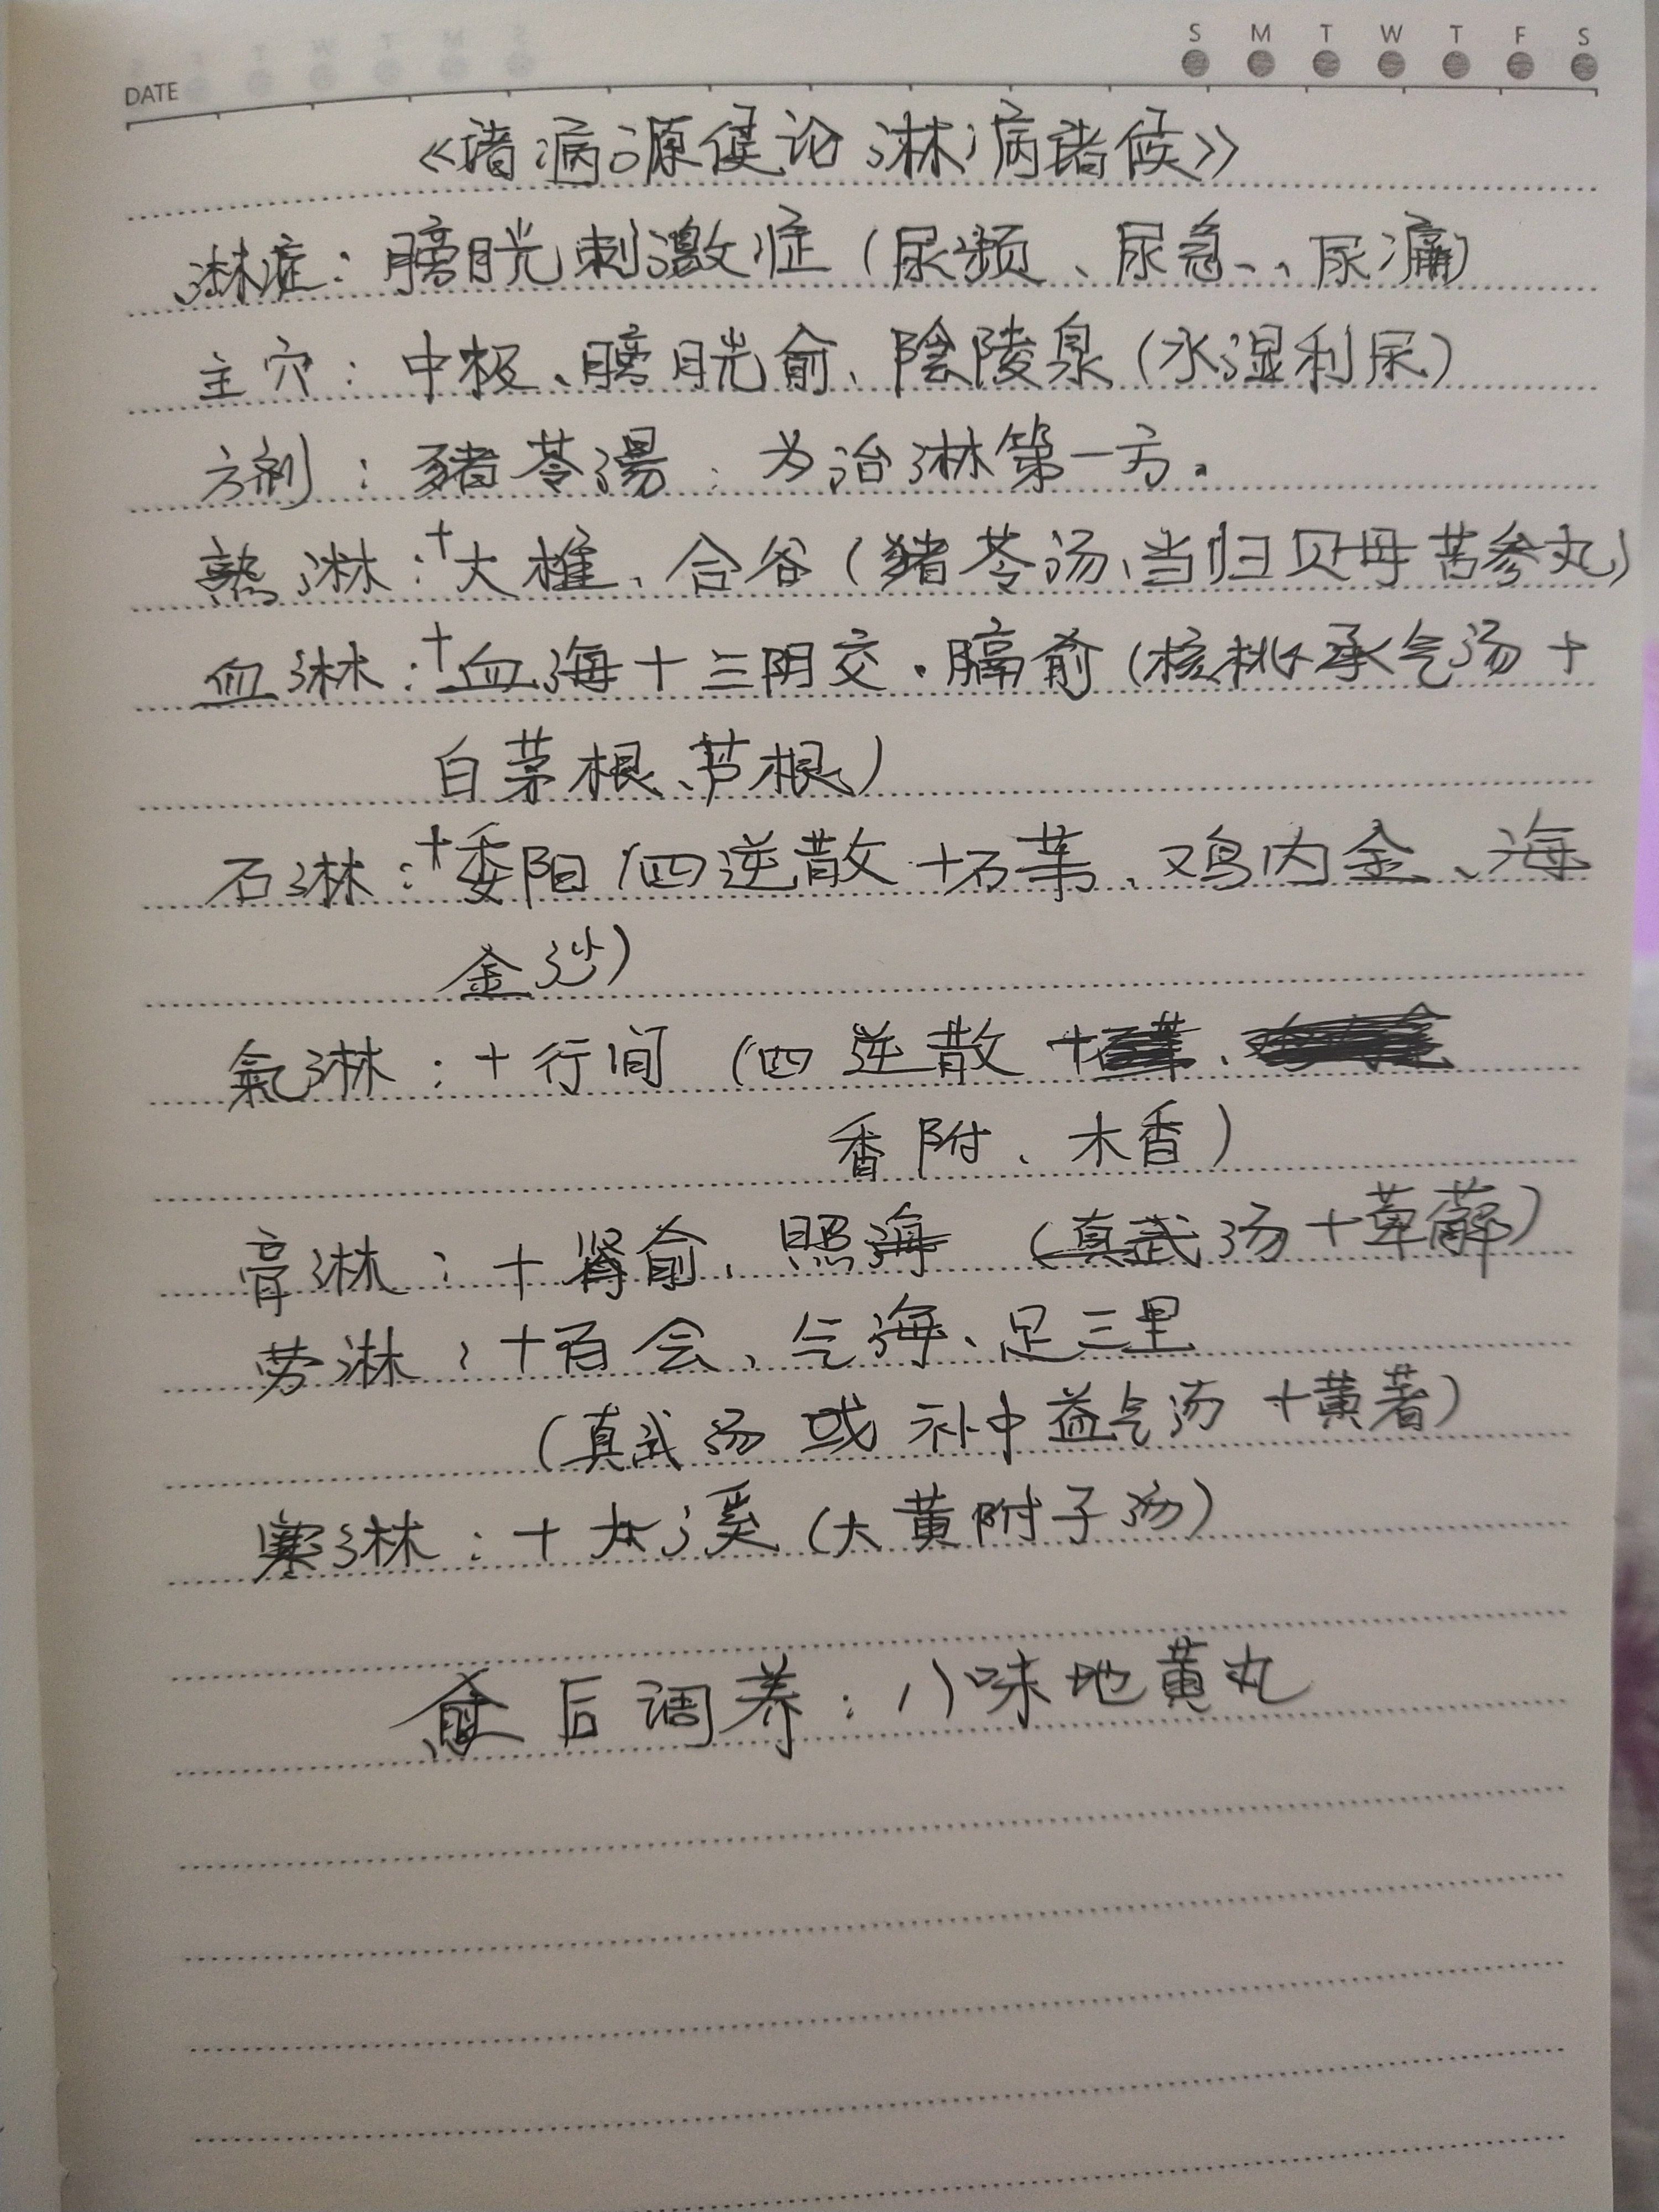 S M T W T F S
DATE
《诸病源候论 淋病诸候》
淋症：膀胱刺激症（尿频、尿急、、尿痛）
主穴：中极、膀胱俞、陰陵泉（水湿利尿）
方剂：豬苓湯：为治淋第一方.
熱淋：+大椎、合谷（豬苓汤、当归贝母苦参丸）
血淋：+血海+三阴交.膈俞（核桃承气汤+
白茅根、芦根）
石淋：+委阳（四逆散+石苇、鸡内金、海
金沙）
氣淋：+行间（四逆散
香附、木香）
膏淋：+肾俞、照海（真武汤+萆薢）
劳淋：+百会、气海、足三里
（真武汤或补中益气汤+黄著）
寒淋：+太溪（大黄附子汤）
愈后调养：八味地黄丸